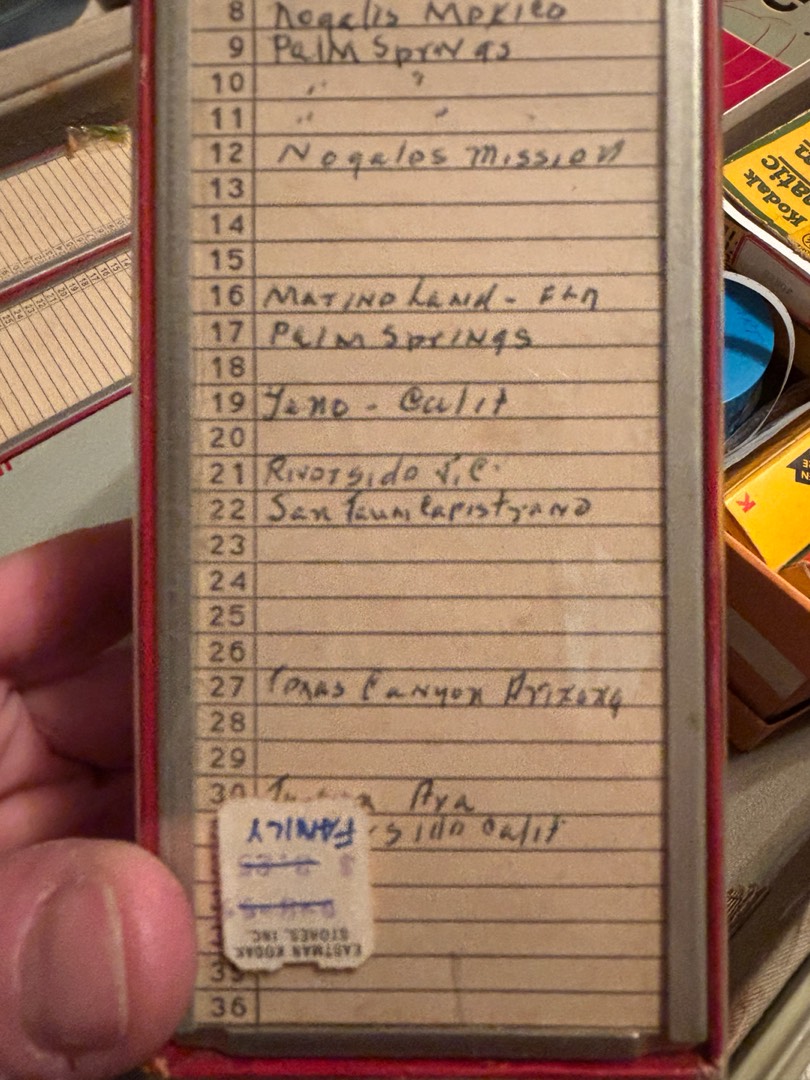 8 Nogalis Mexico
9 Palm Springs
10 " "
11 " "
12 Nogales Mission
13
14
15
16 Marine Land - FLA
17 Palm Springs
18
19 - Calif
20
21 Riverside
22 San Juan Capistrano
23
24
25
26
27 Texas Canyon Arizona
28
29
30
Calif
FAMILY
EASTMAN KODAK
STORES, INC.
35
36
Kodak
K